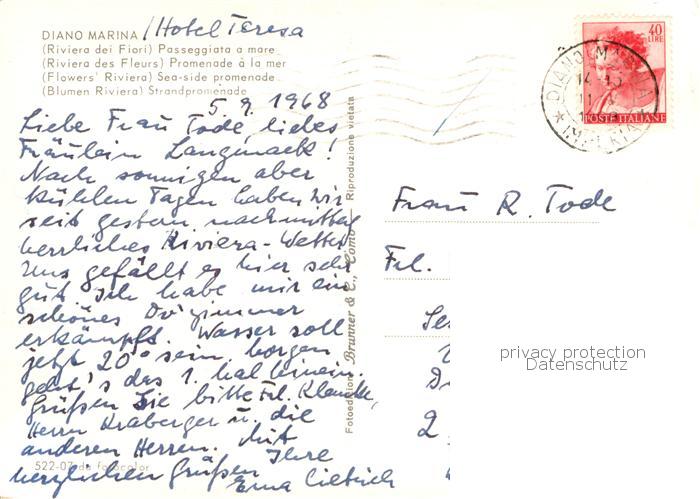 DIANO MARINA / Hotel Teresa
(Riviera dei Fiori) Passeggiata a mare
(Riviera des Fleurs) Promenade à la mer
(Flowers' Riviera) Sea-side promenade
(Blumen Riviera) Strandpromenade
5. 9. 1968
Liebe Frau Tode, liebes
Fräulein Langmaack!
Nach sonnigen aber
kühlen Tagen haben wir
seit gestern nachmittag
herrliches Riviera-Wetter
Uns gefällt es hier sehr
gut. Ich habe mir ein
schönes Do'zimmer
erkämpft. Wasser soll
jetzt 20° sein, morgen
geht's das 1. Mal hinein.
Grüßen Sie bitte Frl.
Herrn Kraberger u. die
anderen Herren. Mit
herzlichen Grüßen Ihre
Erna
522-07 da fotocolor
Fotoedizioni Brunner & C., Como Riproduzione vietata
40
LIRE
POSTE ITALIANE
DIANO MARINA
IMPERIA
Frau R. Tode
Frl.
2
privacy protection
Datenschutz